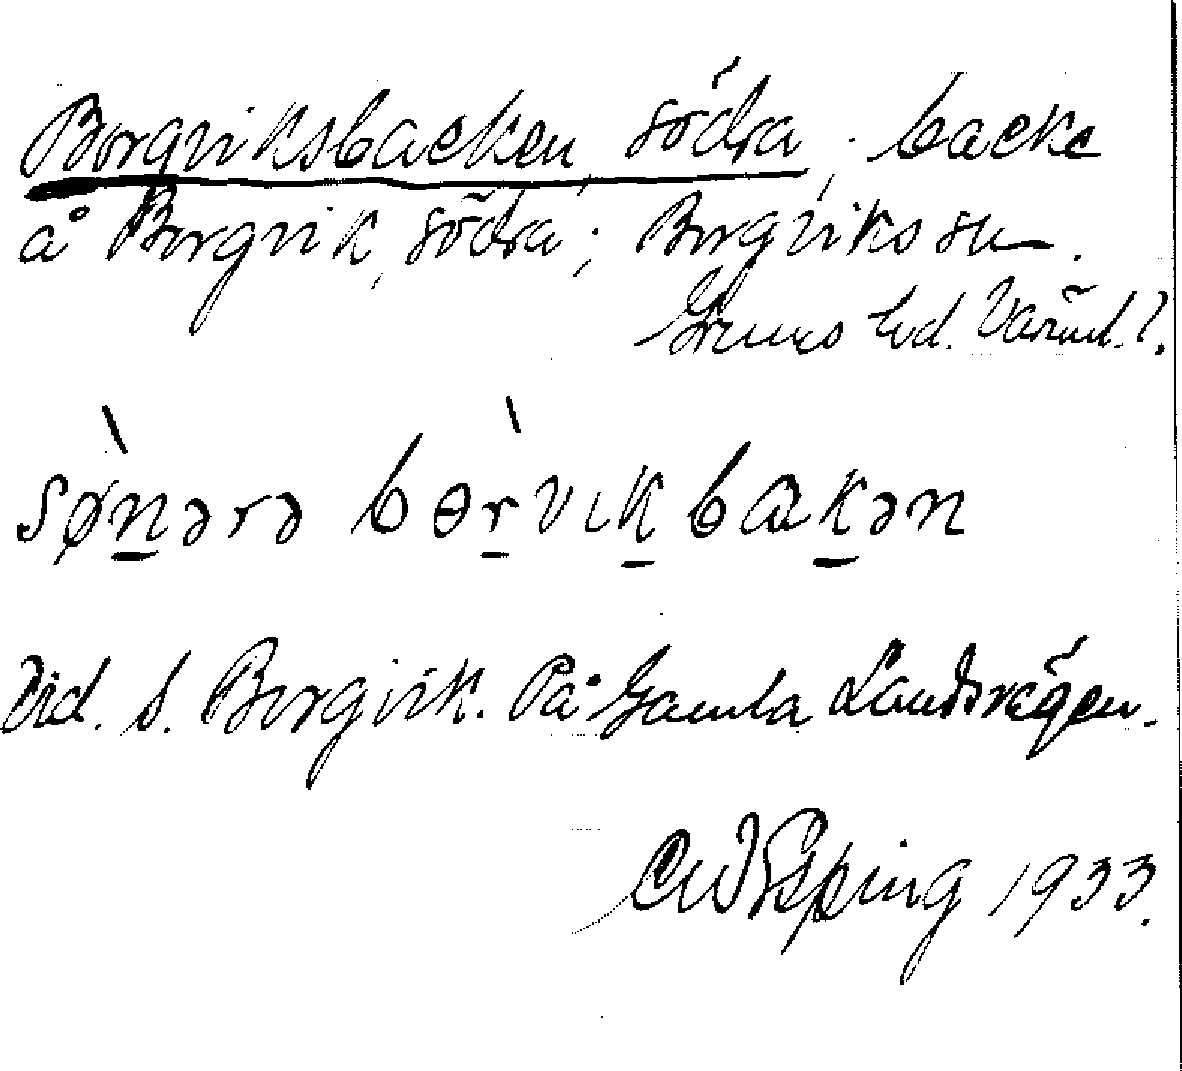 Borgviksbacken, södra, backe
å Borgvik, södra; Borgviks sn.
Grums hd. Värml.
sønərə bɵrvikbakən
Vid s. Borgvik. På Gamla Landsvägen.
1933.